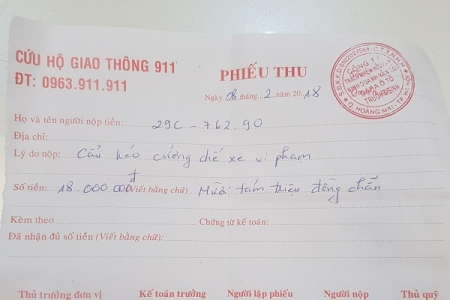 CỨU HỘ GIAO THÔNG 911
ĐT: 0963.911.911
PHIẾU THU
Ngày 08 tháng 2 năm 2018
CÔNG TY
Q. HOÀNG MAI - TP. HÀ NỘI
Họ và tên người nộp tiền: 29C - 762.90
Địa chỉ:
Lý do nộp: Cẩu kéo cưỡng chế xe vi phạm
Số tiền: 18.000 000đ (Viết bằng chữ) Mười tám triệu đồng chẵn
Kèm theo Chứng từ kế toán:
Đã nhận đủ số tiền (Viết bằng chữ):
Thủ trưởng đơn vị Kế toán trưởng Người lập phiếu Người nộp Thủ quỹ